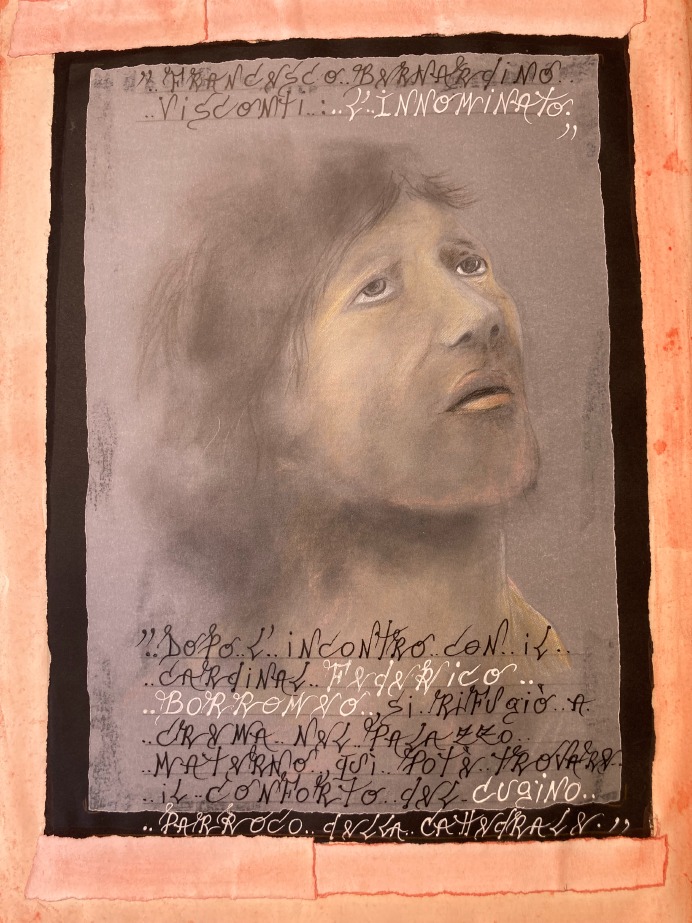 "..FRANCESCO..BERNARDINO..
..VISCONTI..:..L'INNOMINATO.
"
"..DOPO..L'..INCONTRO..CON..IL..
..CARDINAL..FEDERICO..
..BORROMEO..,SI..RIFUGIÒ..A..
..CREMA..NEL..PALAZZO..
..MATERNO,..QUI..POTÈ..TROVARE..
..IL..CONFORTO..DEL..CUGINO..
..PARROCO..DELLA..CATTEDRALE.."